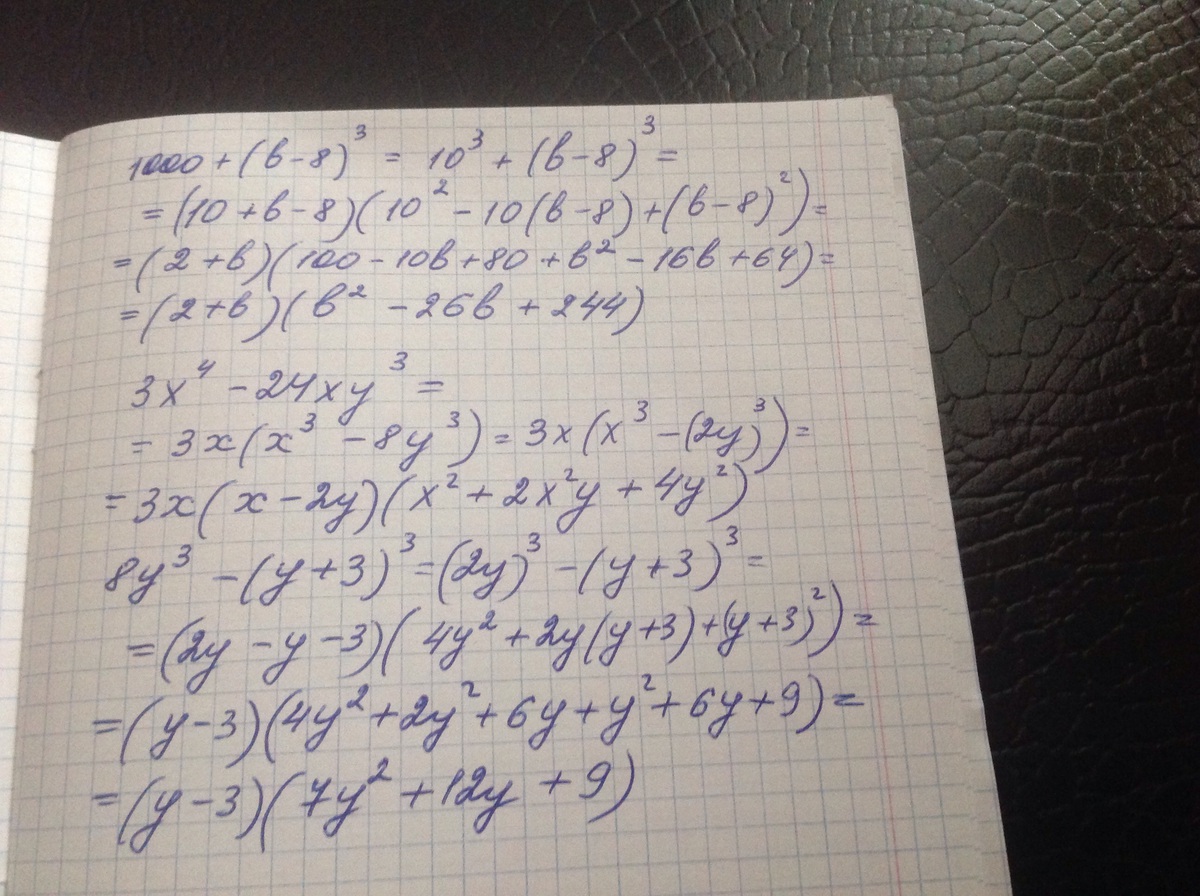 1000 + (b - 8)³ = 10³ + (b - 8)³ =
= (10 + b - 8)(10² - 10(b - 8) + (b - 8)²) =
= (2 + b)(100 - 10b + 80 + b² - 16b + 64) =
= (2 + b)(b² - 26b + 244)
3x⁴ - 24xy³ =
= 3x(x³ - 8y³) = 3x(x³ - (2y)³) =
= 3x(x - 2y)(x² + 2x²y + 4y²)
8y³ - (y + 3)³ = (2y)³ - (y + 3)³ =
= (2y - y - 3)(4y² + 2y(y + 3) + (y + 3)²) =
= (y - 3)(4y² + 2y² + 6y + y² + 6y + 9) =
= (y - 3)(7y² + 12y + 9)